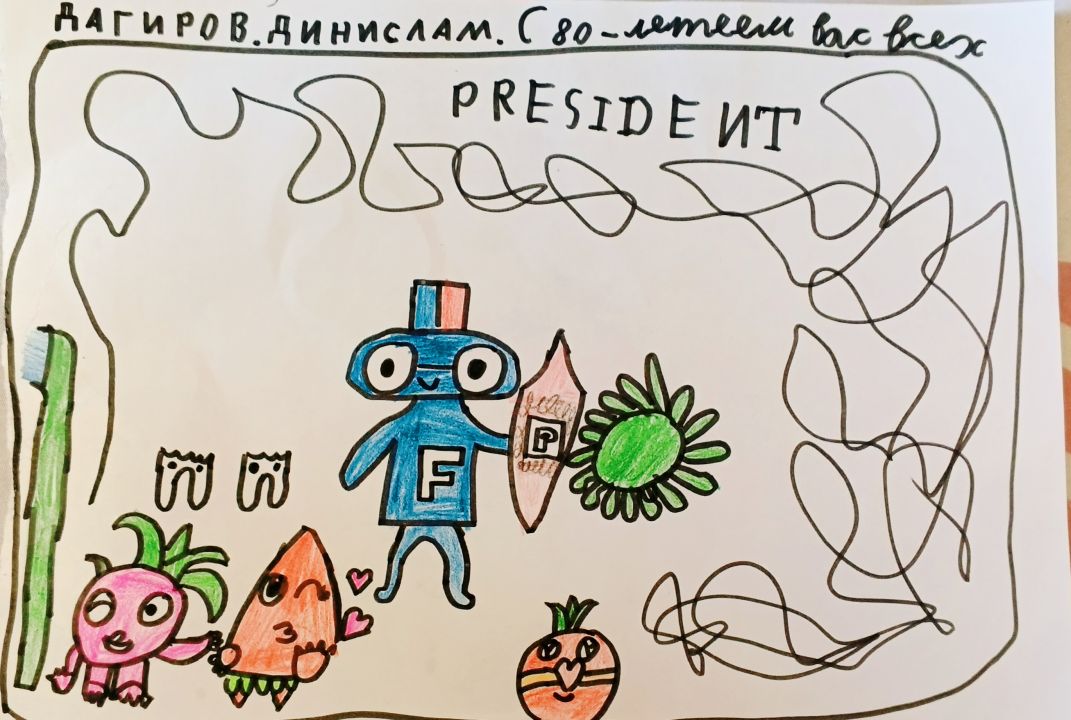 ДАГИРОВ.ДИНИСЛАМ. С 80-летеем вас всех
PRESIDEИT
F
P